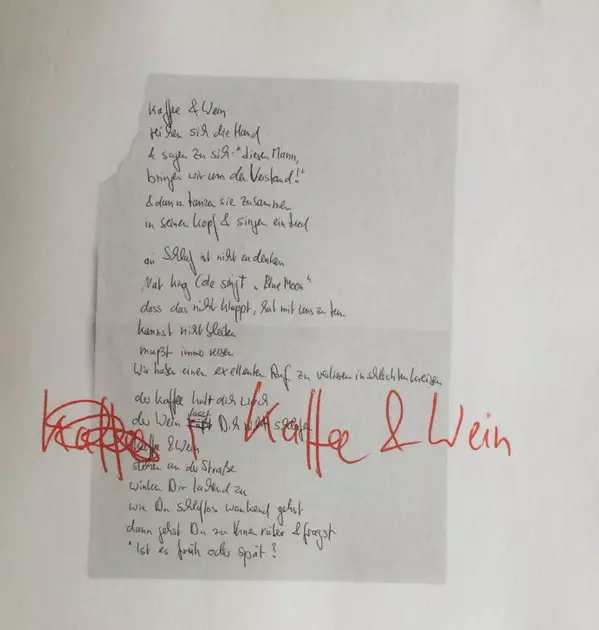 Kaffee & Wein
reichen sich die Hand
& sagen zu sich: "diesen Mann,
bringen wir um den Verstand!"
& dann tanzen sie zusammen
in seinen Kopf & singen ein Lied
an Schlaf ist nicht zu denken
Nat King Cole singt „Blue Moon"
dass das nicht klappt, hat mit uns zu tun
kannst nicht bleiben
mußt immer reisen
Wir haben einen exellenten Ruf zu verlieren in schlechten Kreisen
der Kaffee hält dich wach
der Wein lässt Dich nicht schlafen
Kaffee & Wein
Kaffee & Wein
stehen an der Straße
winken Dir lachend zu
wie Du schlaflos wankend gehst
dann gehst Du zu Ihnen rüber & fragst
"Ist es früh oder spät?